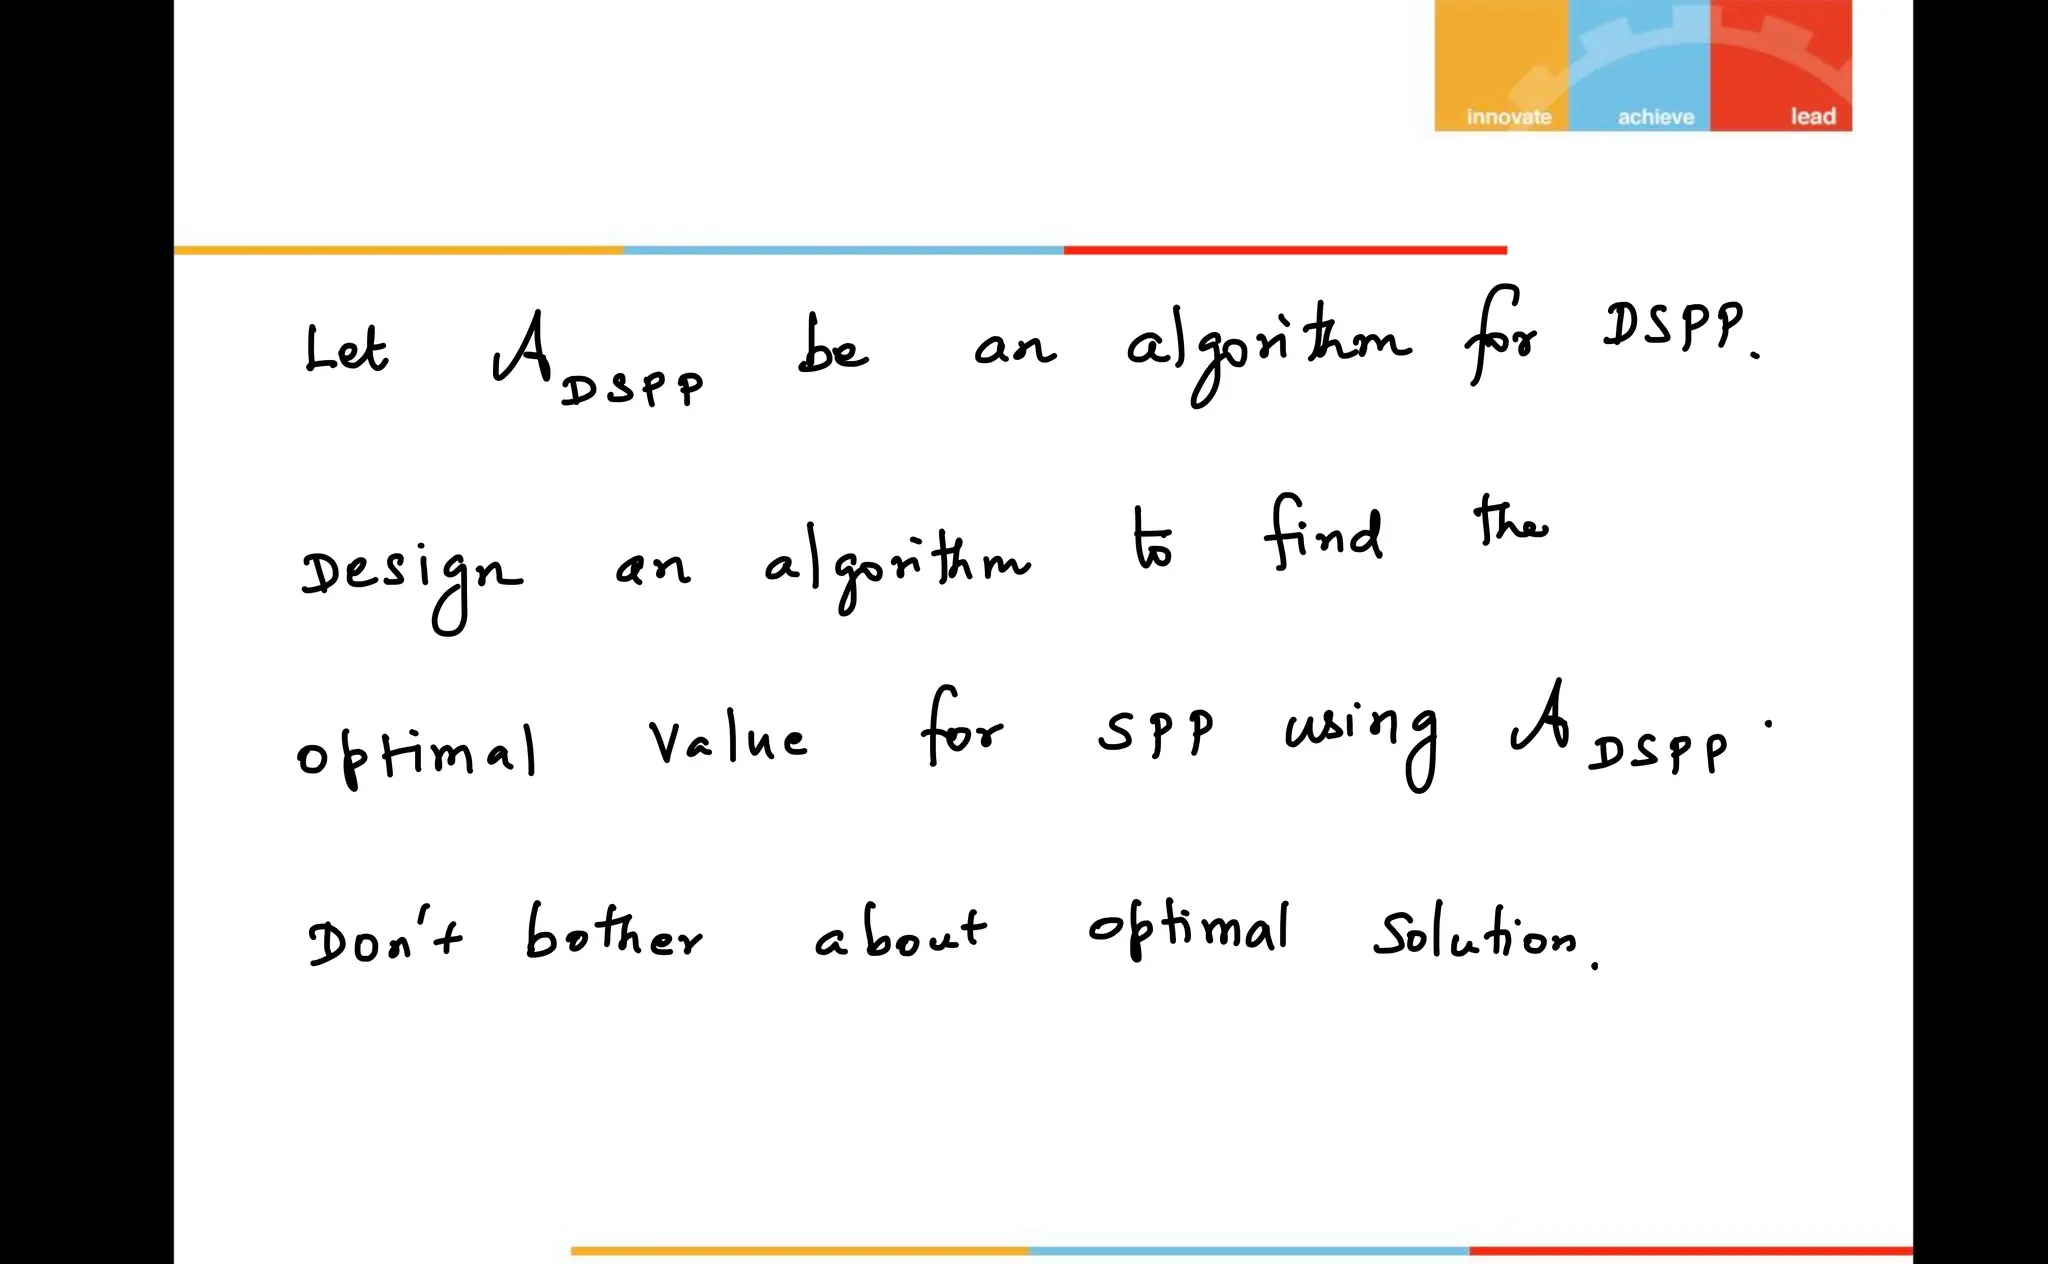 innovate achieve lead
Let A DSPP be an algorithm for DSPP.
Design an algorithm to find the
optimal value for SPP using A DSPP.
Don't bother about optimal solution.